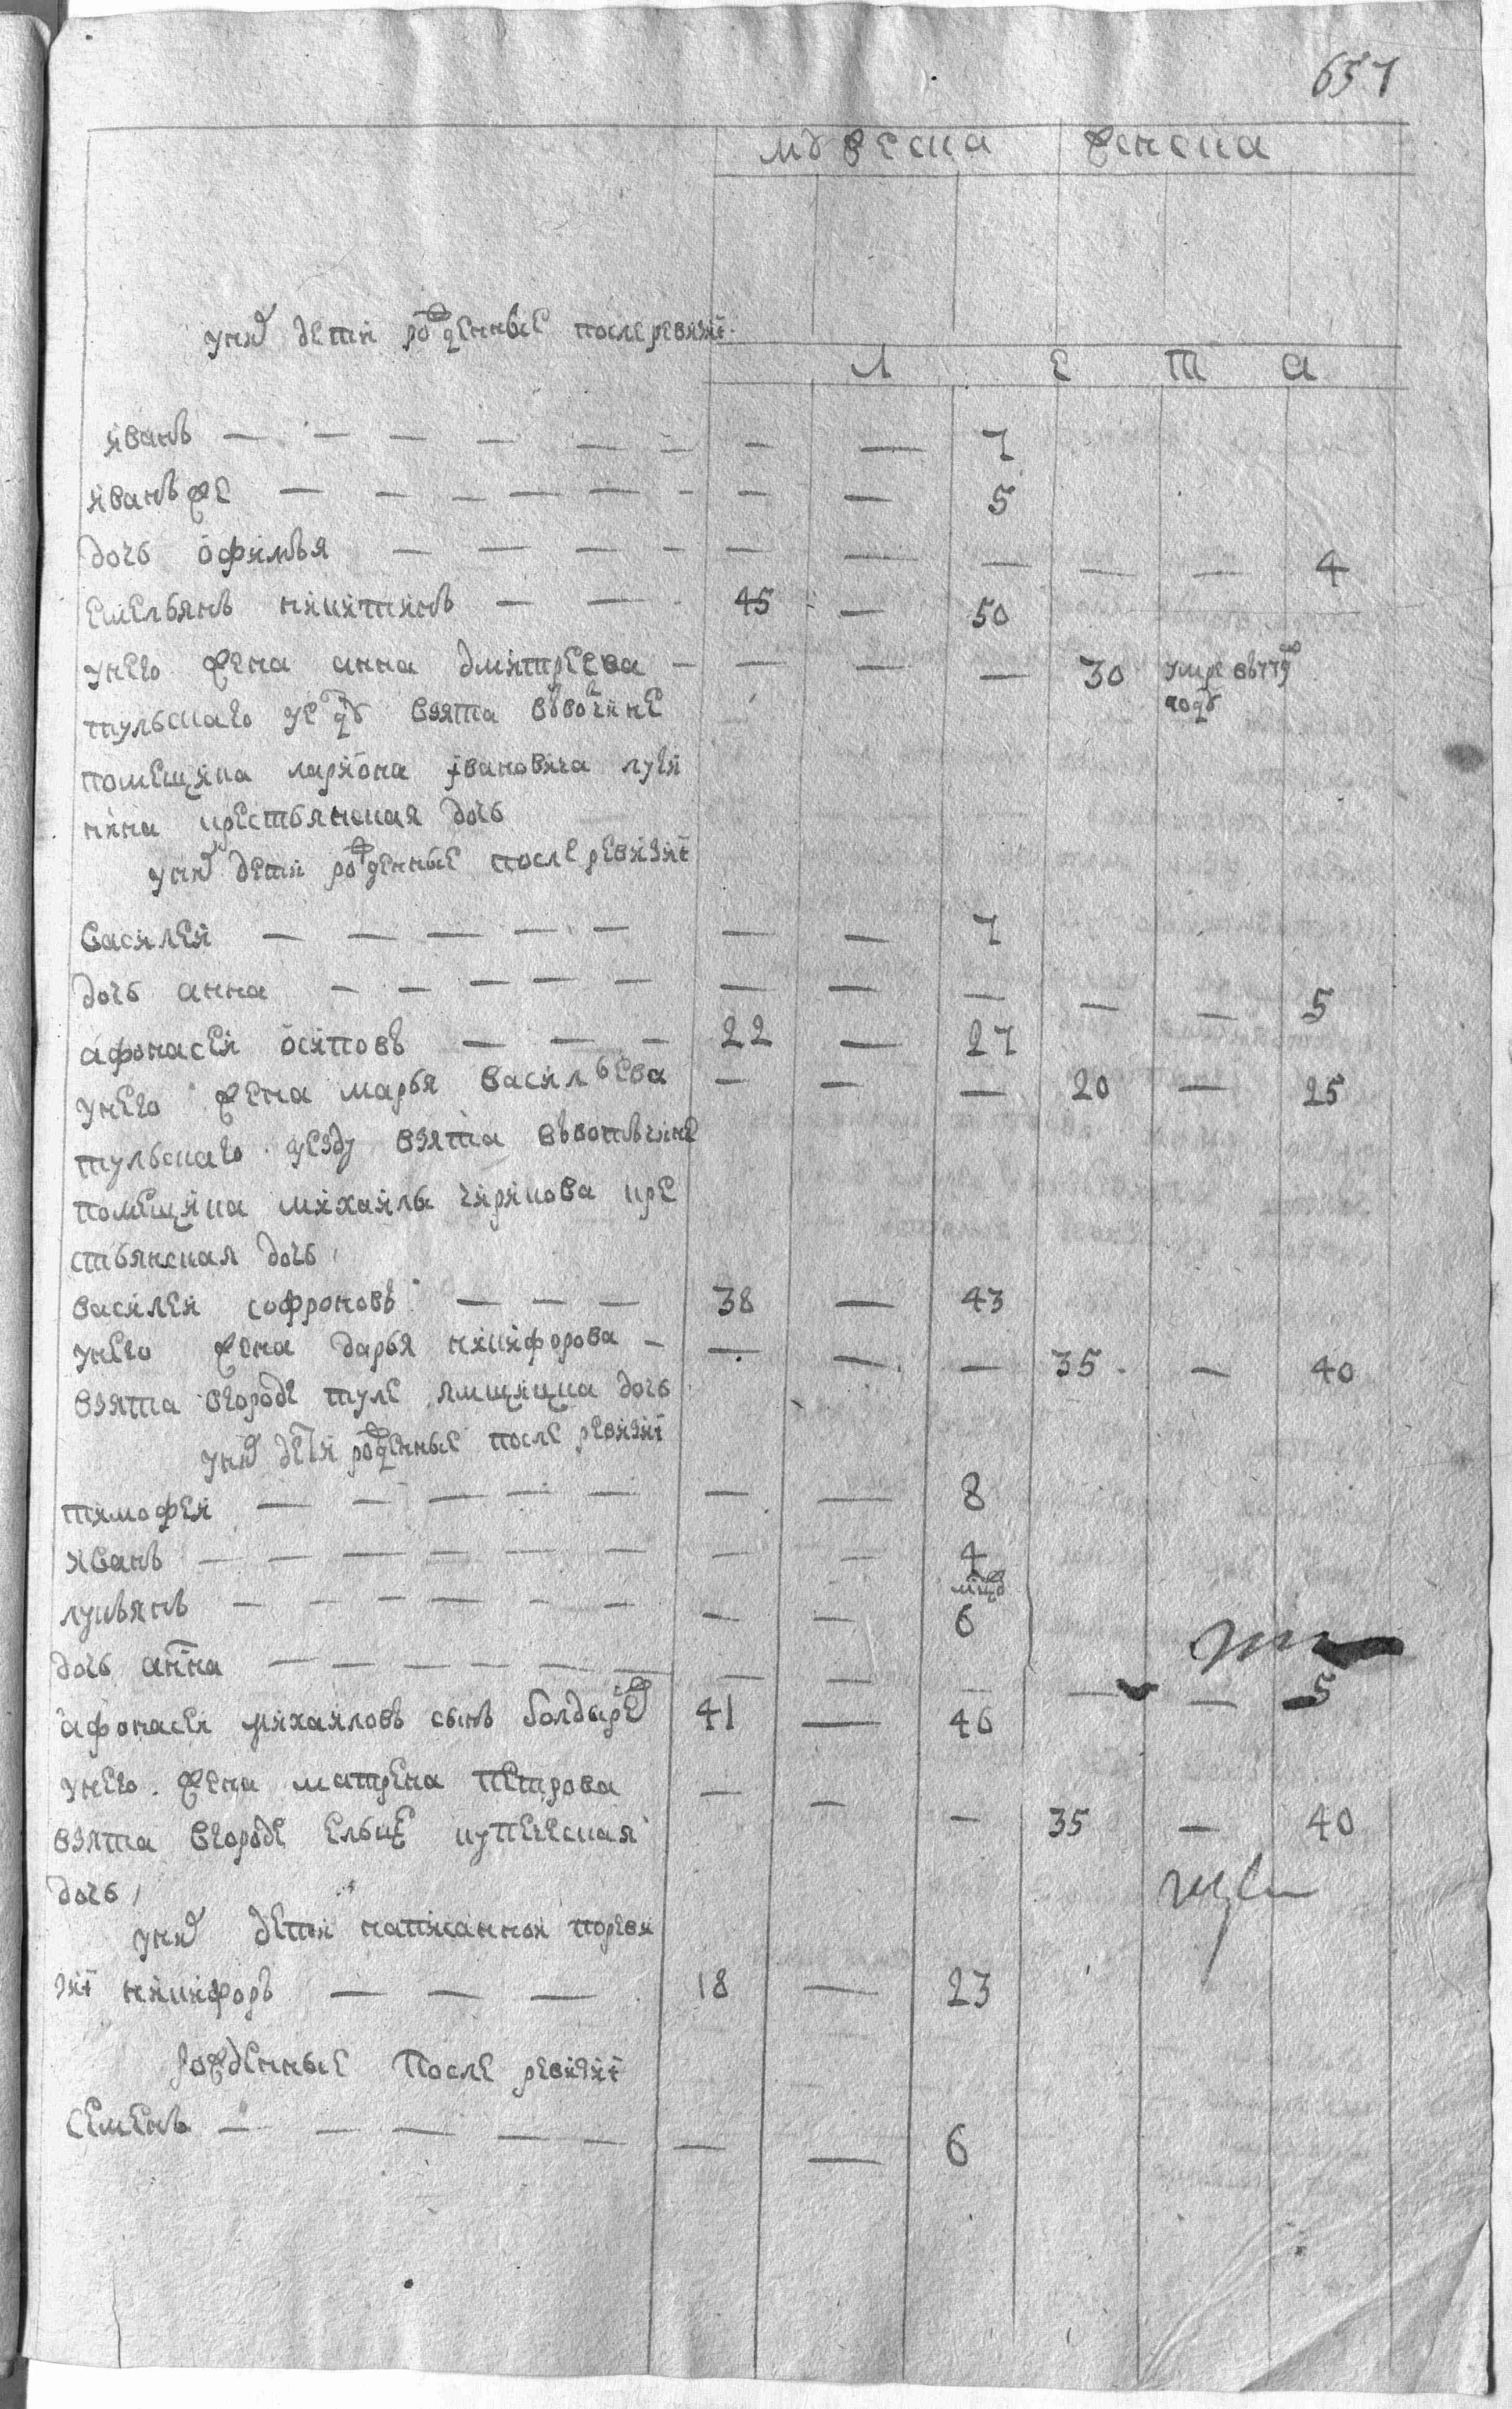 657
мужеска женска
уних дети рожденные после ревизиї
л е т а
иванъ — — — — — — — — 7
иванъ же — — — — — — — — 5
дочь офимья — — — — — — — — — 4
емельянъ никитинъ — — 45 — 50
унего жена анна дмитреева — — — — 30 умре въ 779
тульскаго уезду взята ввотчине году
помещика лариона ивановича луги
нина крестьянская дочь
уних дети рожденные после ревизиї
василей — — — — — — — 7
дочь анна — — — — — — — — — — 5
афонасей осиповъ — — — 22 — 27
унего жена марья васильева — — — 20 — 25
тульскаго уезду взята въвотъчине
помещика михаилы чирикова кре
стьянская дочь
василей софроновъ — — — 38 — 43
унего жена дарья никифорова — — — — 35 — 40
взята вгороде туле ямщицка дочь
уних дети рожденные после ревизиї
тимофей — — — — — — — 8
иванъ — — — — — — — — 4
лукьянъ — — — — — — — — 6
дочь анна — — — — — — — — — — — 5
афонасей михаиловъ сынъ болдырев 41 — 46
унего жена матрена петрова — — — 35 — 40
взята вгороде ельце купеческая
дочь
уних дети написанной порева
зиї никифоръ — — — 18 — 23
рожденные после ревизиї
семенъ — — — — — — — 6